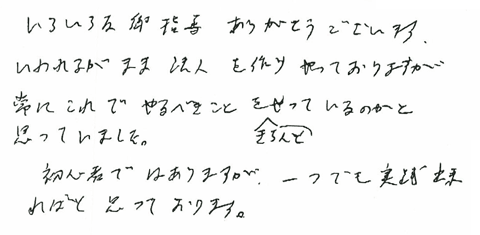 いろいろな御指導 ありがとうございます.
いわれるがまま 法人 を作り やっておりますが
常に これで やるべきこと をやっているのかと
きちんと
思っていました。
初心者で はありますが. 一つでも 実践出来
ればと 思って おります。